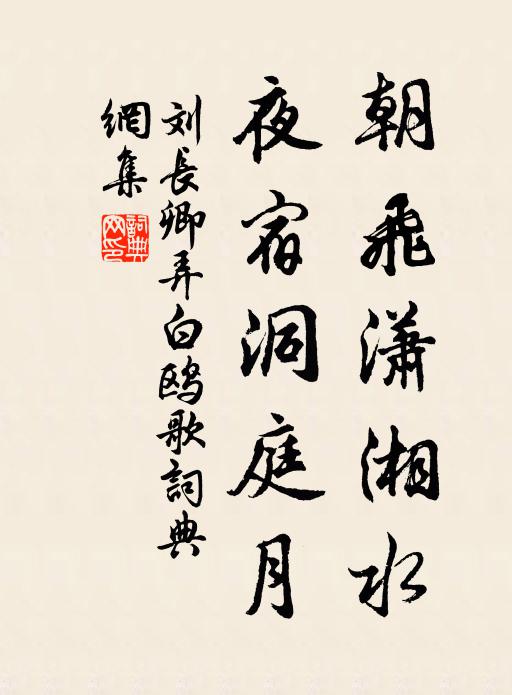 朝飛瀟湘水
夜宿洞庭月
刘長卿弄白鸥歌詞典
網集
詞典网印